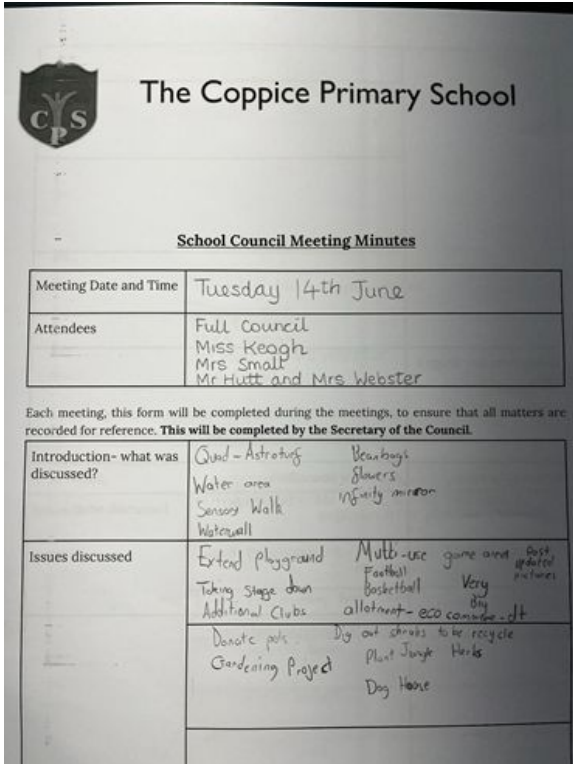 CPS
The Coppice Primary School
School Council Meeting Minutes
Meeting Date and Time
Tuesday 14th June
Attendees
Full Council
Miss Keogh
Mrs Small
Mr Hutt and Mrs Webster
Each meeting, this form will be completed during the meetings, to ensure that all matters are
recorded for reference. This will be completed by the Secretary of the Council.
Introduction- what was
discussed?
Quad - Astroturf
Water area
Sensory Walk
Waterwall
Beanbags
flowers
infinity mirror
Issues discussed
Extend playground
Taking Stage down
Additional Clubs
Multi-use game area
Football
Basketball
allotment - eco - dt
Very
Big
Post
updated
pictures
Donate pots
Gardening Project
Dig out shrubs to be recycle
Plant Jungle Herbs
Dog House